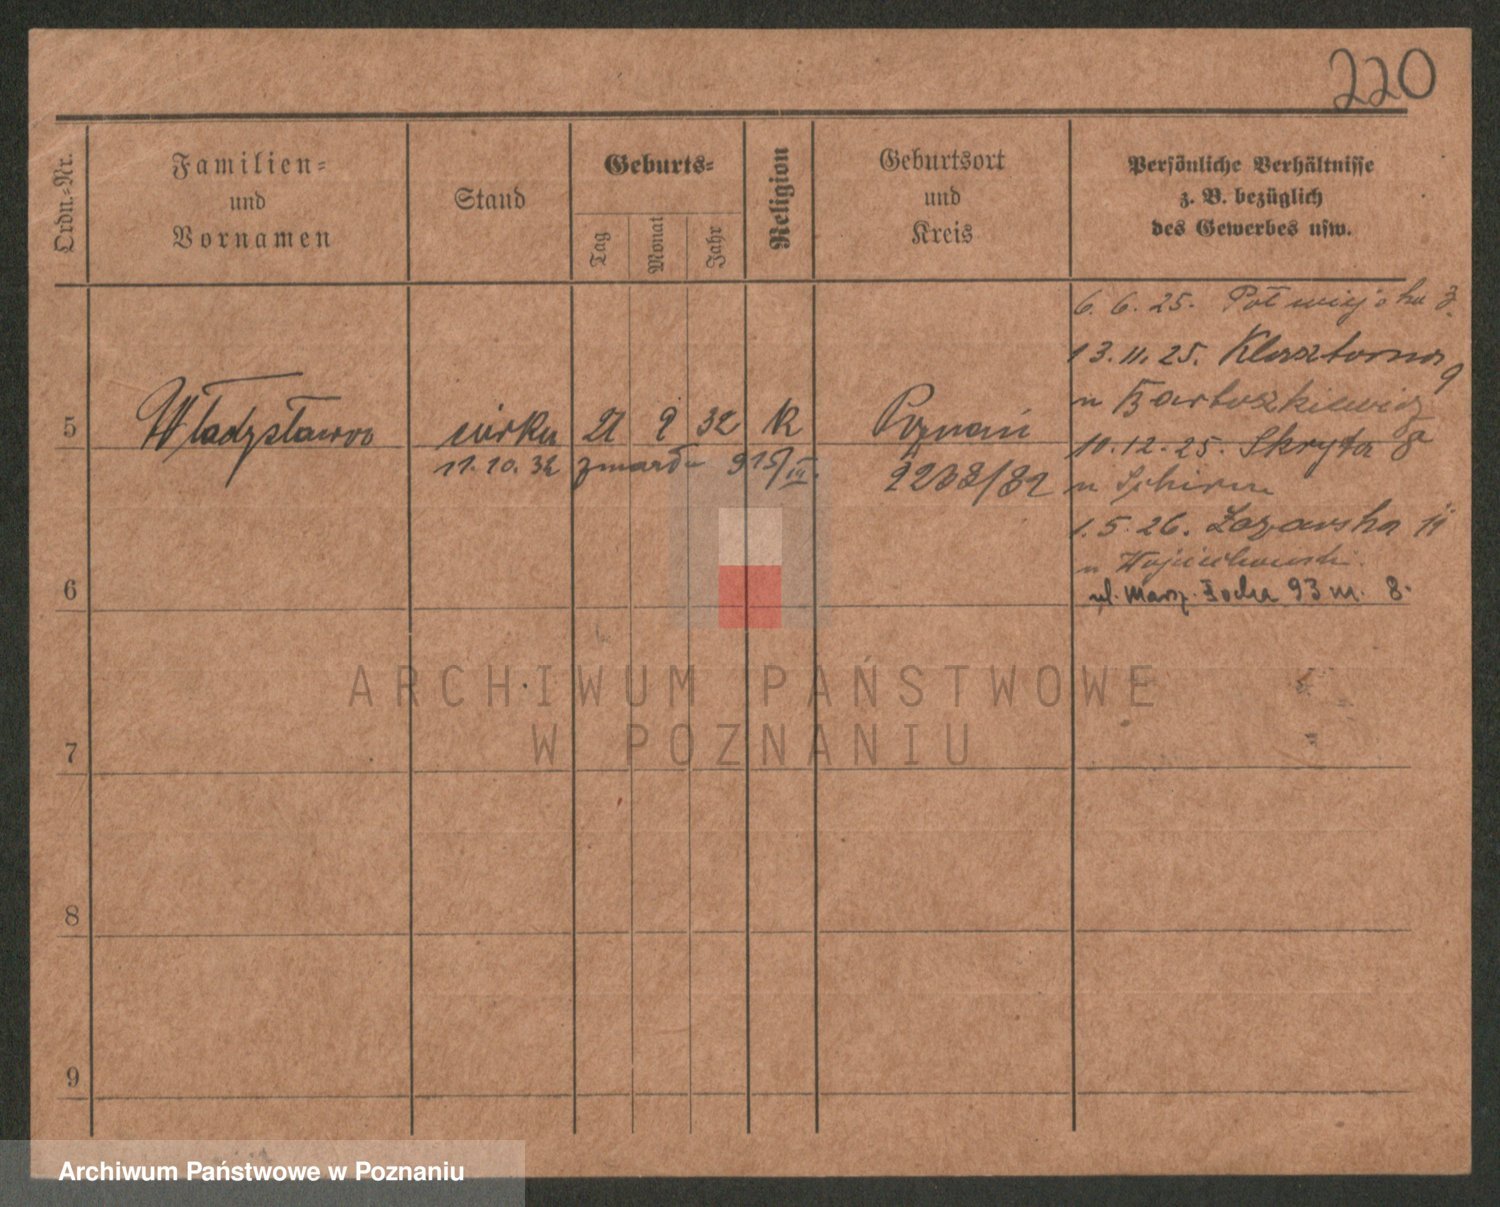 220
Ordn.-Nr.
Familien-
und
Vornamen
Stand
Geburts-
Tag
Monat
Jahr
Religion
Geburtsort
und
Kreis
Persönliche Verhältnisse
z. B. bezüglich
des Gewerbes usw.
6. 6. 25. Półwiejska 3.
13. 11. 25. Klasztorna 9
u Bartoszkiewicz
5 Władysława córka 21 9 32 K Poznań
11. 10. 32 zmarła 915/III. 2203/32
10. 12. 25. Skryta 8
u
1. 5. 26. Łazarska 11
u Wojciechowski.
6
ul. Marsz. Focha 93 m. 8.
ARCHIWUM PAŃSTWOWE
W POZNANIU
7
8
9
Archiwum Państwowe w Poznaniu